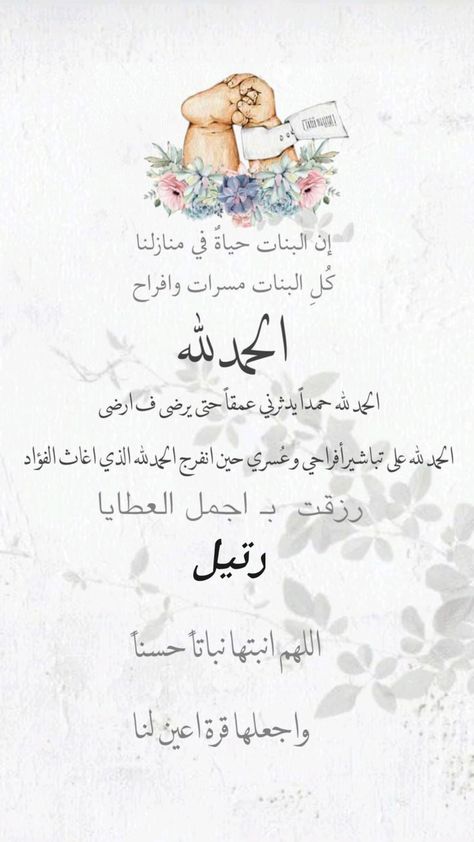 إن البنات حياةٌ في منازلنا
كُلِ البنات مسرات وافراح
الحمدلله
الحمدلله حمداً يدثرني عمقاً حتى يرضى ف ارضى
الحمدلله على تباشير أفراحي وعُسري حين انفرج الحمدلله الذي اغاث الفؤاد
رزقت بـ اجمل العطايا
رتيل
اللهم انبتها نباتاً حسناً
واجعلها قرة اعين لنا